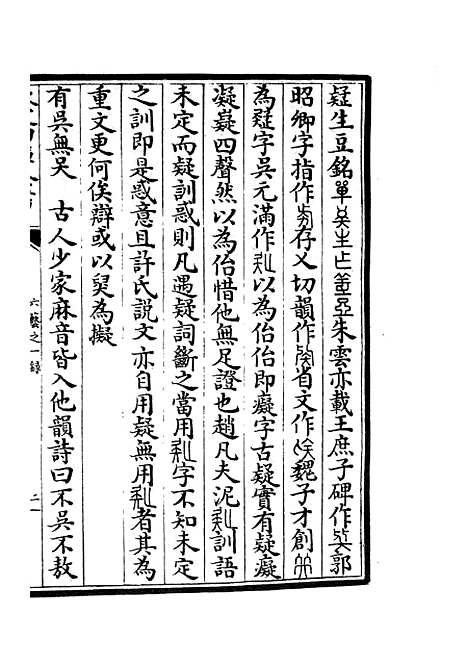 疑生豆銘單生朱雲亦載王庶子碑作郭
昭卿字指作存乂切韻作省文作魏子才創
為疑字吳元滿作以為佁佁即癡字古疑實有疑癡
凝嶷四聲然以為佁惜他無足證也趙凡夫泥訓語
未定而疑訓惑則凡遇疑詞斷之當用字不知未定
之訓即是惑意且許氏說文亦自用疑無用者其為
重文更何俟辯或以㠯為擬
有吳無吳 古人少家麻音皆入他韻詩曰不吳不敖
六藝之一錄